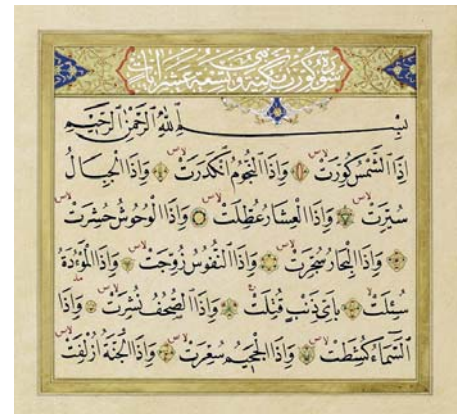 سورة كورت مكية وتسعة عشر اياتها
بِسْمِ اللّٰهِ الرَّحْمٰنِ الرَّحِيْمِ
اِذَا الشَّمْسُ كُوِّرَتْ ۙ وَاِذَا النُّجُومُ انْكَدَرَتْ ۙ وَاِذَا الْجِبَالُ
سُيِّرَتْ ۙ وَاِذَا الْعِشَارُ عُطِّلَتْ ۙ وَاِذَا الْوُحُوشُ حُشِرَتْ ۙ
وَاِذَا الْبِحَارُ سُجِّرَتْ ۙ وَاِذَا النُّفُوسُ زُوِّجَتْ ۙ وَاِذَا الْمَوْءُدَةُ
سُئِلَتْ ۙ بِاَيِّ ذَنْبٍ قُتِلَتْ ۚ وَاِذَا الصُّحُفُ نُشِرَتْ ۙ وَاِذَا
السَّمَاءُ كُشِطَتْ ۙ وَاِذَا الْجَحِيمُ سُعِّرَتْ ۙ وَاِذَا الْجَنَّةُ اُزْلِفَتْ ۙ